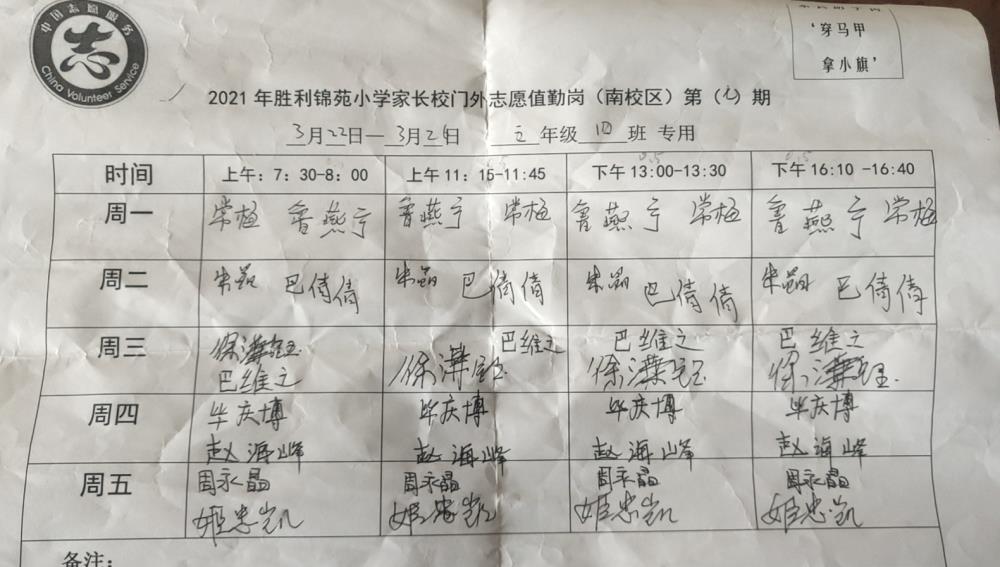 中国志愿服务
志
China Volunteer Service
'穿马甲
拿小旗'
2021年胜利锦苑小学家长校门外志愿值勤岗（南校区）第（七）期
3月22日—3月26日 五 年级 四 班 专用
时间 上午：7：30-8：00 上午11：15-11:45 下午13:00-13:30 下午16:10 -16:40
周一 常梅 鲁燕宁 鲁燕宁 常梅 鲁燕宁 常梅 鲁燕宁 常梅
周二 朱 巴倩倩 朱 巴倩倩 朱 巴倩倩 朱 巴倩倩
周三 徐 巴维之 巴维之 徐 巴维之 徐 巴维之 徐
周四 毕庆博 毕庆博 毕庆博 毕庆博
赵海峰 赵海峰 赵海峰 赵海峰
周五 周永晶 周永晶 周永晶 周永晶
姬忠凯 姬忠凯 姬忠凯 姬忠凯
备注：